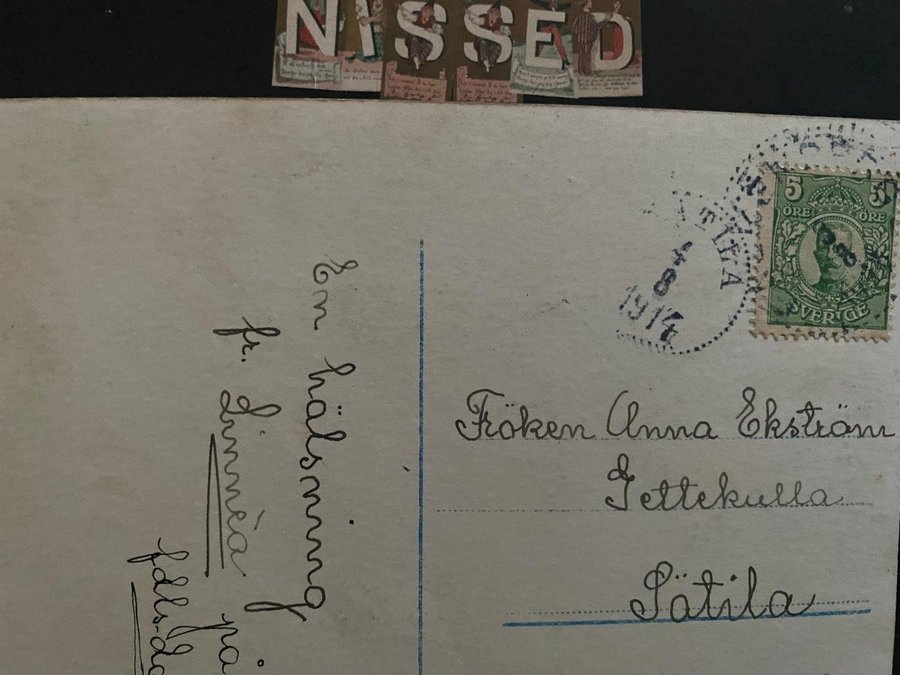 NISSED
5 5
ÖRE ÖRE
SVERIGE
4
8
1914
Fröken Anna Ekström
Gettekulla
Sätila
En hälsning
fr. Linnéa på